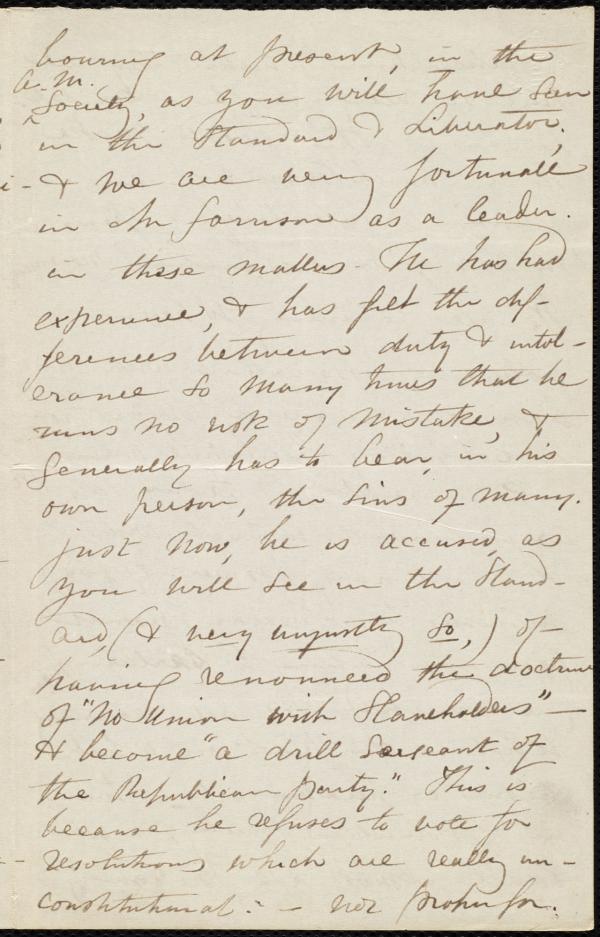 bouring at present, in the
A. M.
^ Society, as you will have seen
in the Standard & Liberator,
& we are very fortunate
in Mr Garrison as a leader.
in these matters. He has had
experience, & has felt the dif-
ferences between duty & intol-
erance so many times that he
runs no risk of mistake, &
generally has to bear, in his
own person, the sins of many.
Just now, he is accused, as
you will see in the Stand-
ard, (& very unjustly so,) of
having renounced the doctrine
of "No Union with Slaveholders" —
& become "a drill sergeant of
the Republican party." This is
because he refuses to vote for
resolutions which are really un-
constitutional: — nor proper for